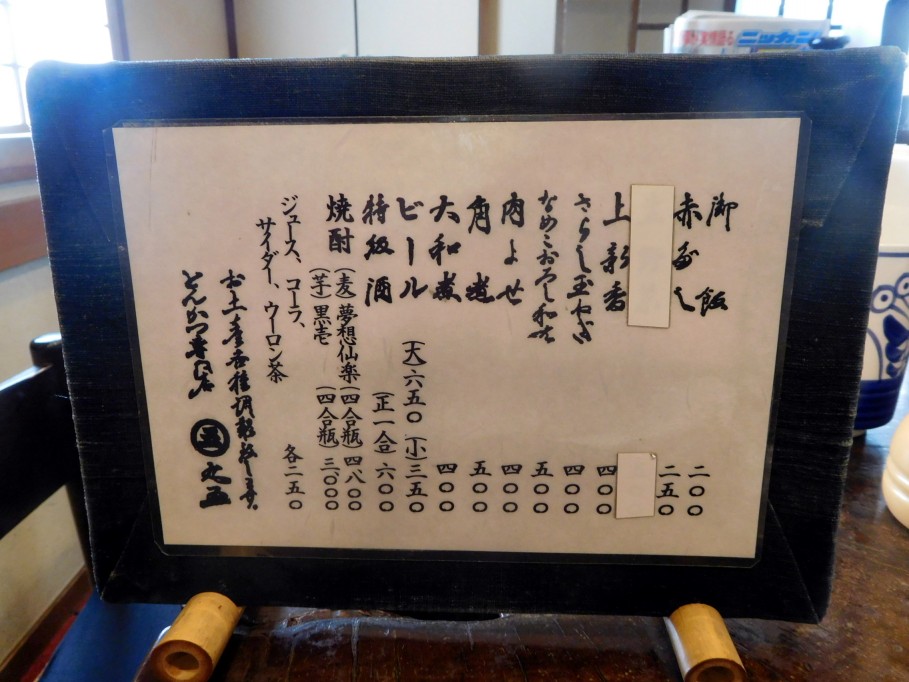 御飯 二〇〇
赤だし 二五〇
上新香 四〇〇
さらし玉ねぎ 四〇〇
なめこおろし和え 五〇〇
肉よせ 四〇〇
角煮 五〇〇
大和煮 四〇〇
ビール (大)六五〇 (小)三五〇
特級酒 (正一合)六〇〇
焼酎 (麦)夢想仙楽(四合瓶)四八〇〇
(芋)黒壱 (四合瓶)三〇〇〇
ジュース、コーラ、
サイダー、ウーロン茶 各二五〇
お土産各種調製致します。
とんかつ専門店